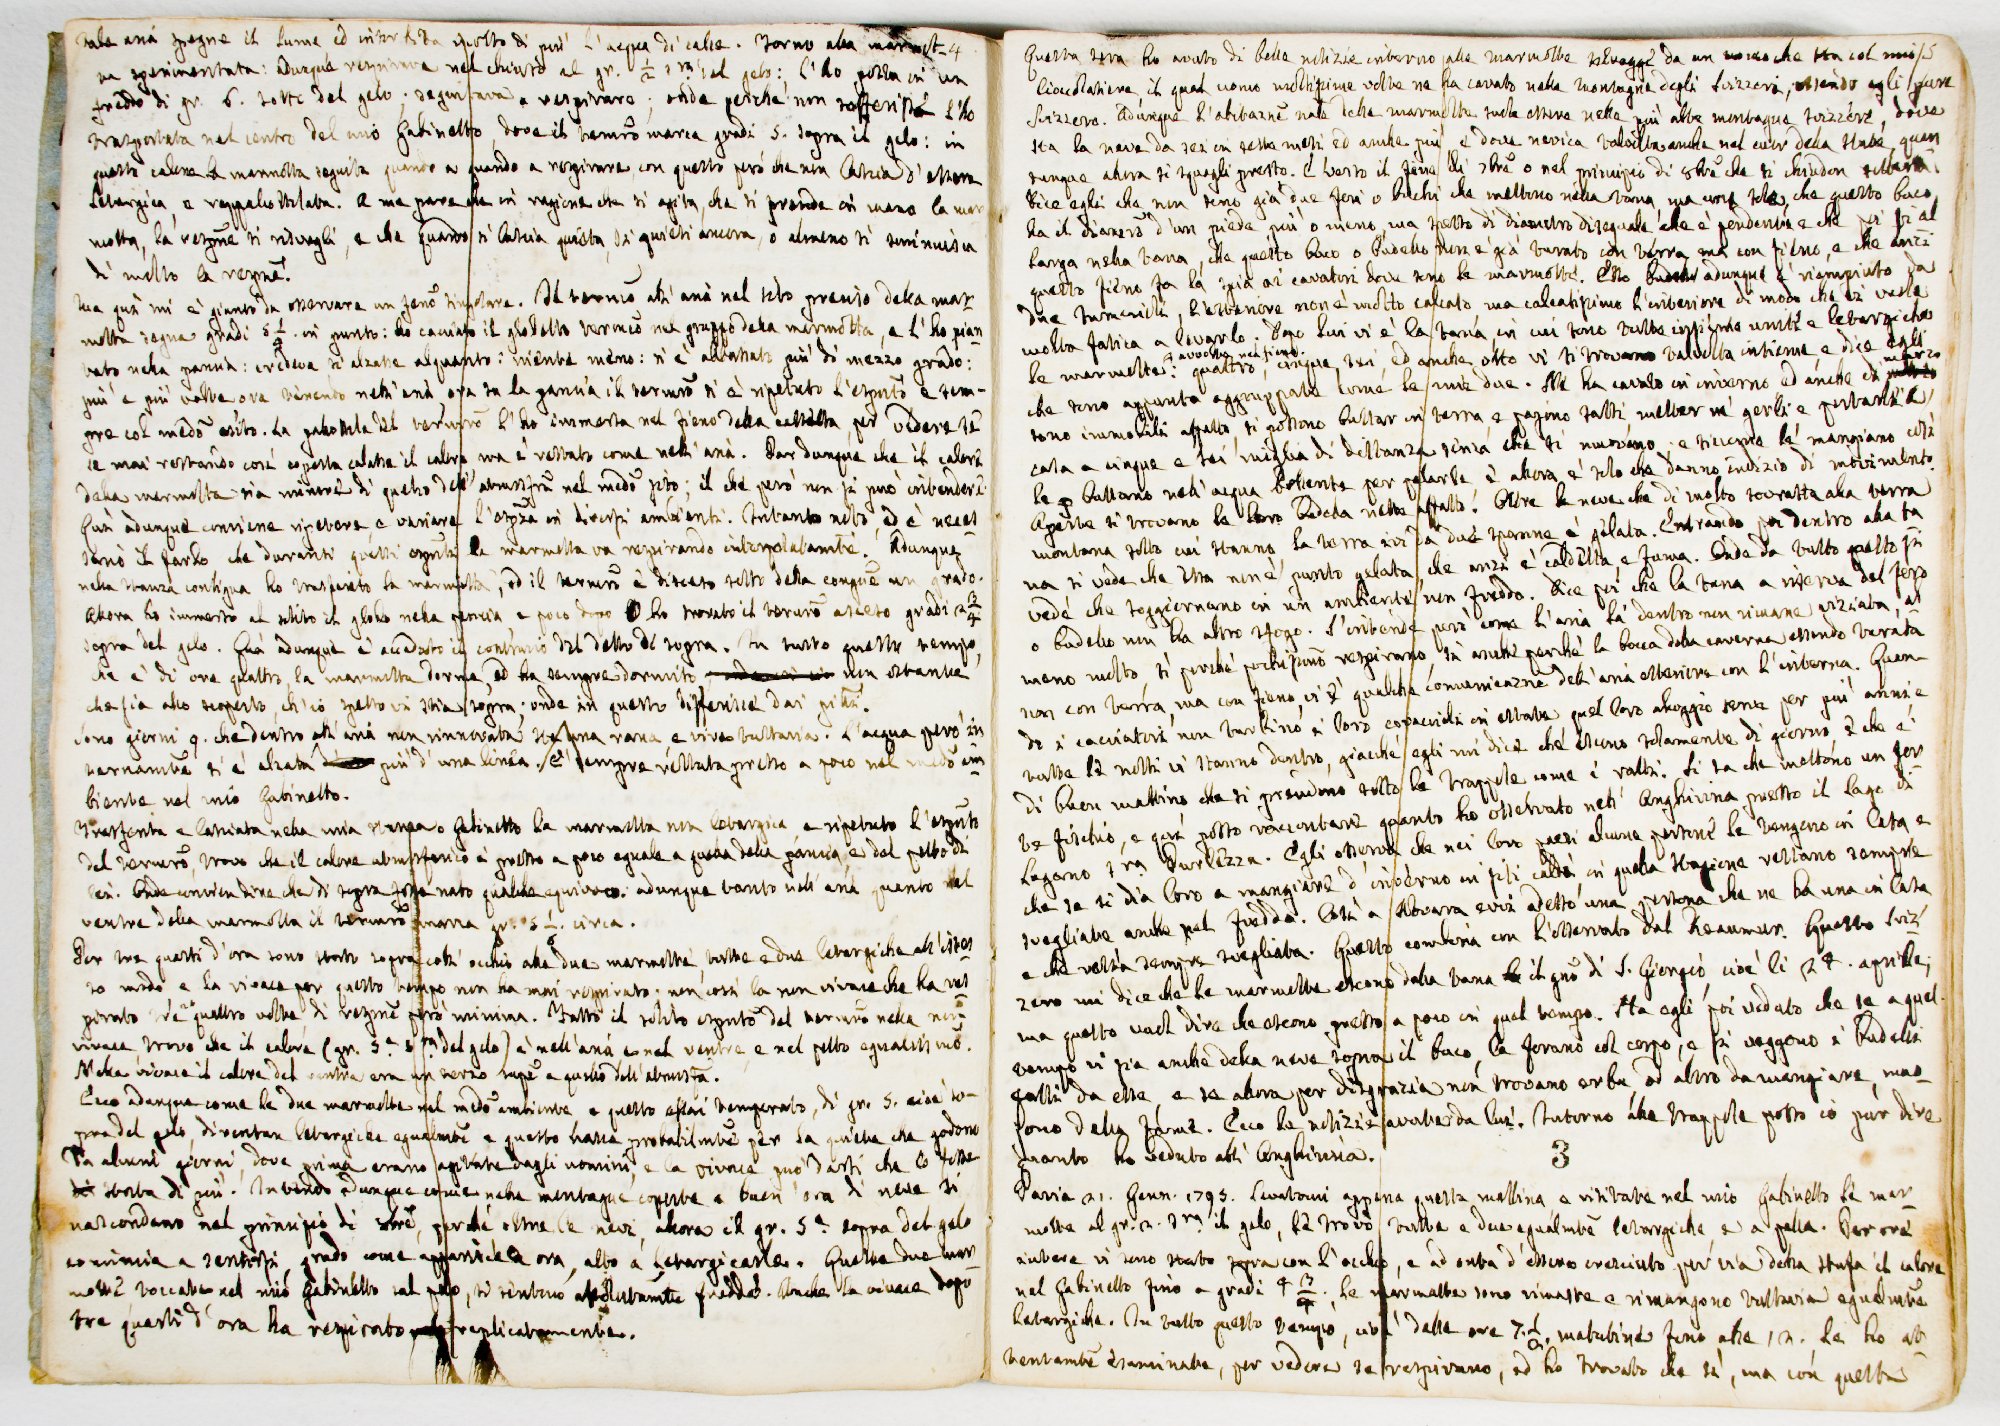 tale aria spegne il lume ed intorbida molto di più l'acqua di calce. Torno alla marmot- 4
ta sperimentata: Adunque respirava nel chiuso al gr. 1/2 sopra del gelo: l'ho posta in un
freddo di gr. 6. sotto del gelo; seguitava a respirare; onde perché non l'ho
trasportata nel centro del mio Gabinetto, dove il termro marca gradi 5. sopra il gelo: in
questo calore la marmotta seguita quando a quando a respirare con questo però che non lascia d'essere
letargica, e rappallottolata. A me pare che in ragione che si agita, che si prende in mano la mar
motta, la respne si risvegli, e che quando si lascia quieta, si quieti ancora, o almeno si diminuisca
di molto la respne.
Ma quì mi è giunto da osservare un fenoo singolare. Il termro all'aria nel sito preciso della mar
motta segna gradi 5 1/2 in punto: ho cacciato il globetto termrco nel gruppo della marmotta, e l'ho pian
tato nella pancia: credeva si alzasse alquanto: niente meno: si è abbassato più di mezzo grado:
più e più volte ora tenendo nell'aria ora su la pancia il termro si è ripetuto l'espmto e sem-
pre col medo esito. La pallottola del termro l'ho immersa nel fieno della cassetta, per vedere se
se mai restando così coperta calasse il calore ma è restato come nell'aria. Par dunque che il calore
della marmotta sia minore di quello dell'atmosfra nel medo sito; il che però non si può intendere.
Quì adunque conviene ripetere, e variare l'espza in diversi ambienti. Intanto noto, ed è neces
sario il farlo che duranti questi espmti la marmotta va respirando interpolatamte. Adunque
nella stanza contigua ho trasferito la marmotta, ed il termro è disceso sotto della congne un grado.
Allora ho immerso al solito il globo nella pancia e poco dopo ho trovato il termro asceso gradi 2 3/4
sopra del gelo. Quà adunque è accaduto il contrario del detto di sopra. In tutto questo tempo,
che è di ore quattro, la marmotta dorme, ed ha sempre dormito non ostante
che sia allo scoperto, ch'io spesso vi stia sopra; onde in questo differisce dai
Sono giorni 9. che dentro all'aria non rinnovata sta una rana, e vive tuttavia. L'acqua però in
ternamte si è alzata più d'una linea. è sempre restata presso a poco nel medo am
biente nel mio Gabinetto.
Trasferita e lasciata nella mia stanza o Gabinetto la marmotta non letargica, e ripetuto l'espmto
del termro, trovo che il calore atmosferico è presso a poco eguale a quello della pancia, e del petto di
lei. Onde convien dire che di sopra fosse nato qualche equivoco. Adunque tanto nell'aria quanto nel
ventre della marmotta il termro marca gr. 5 1/2 circa.
Per tre quarti d'ora sono stato sopra coll'occhio alle due marmotte, tutte e due letargiche all'istes
so modo e la vivace per questo tempo non ha mai respirato; non così la non vivace che ha res
pirato tre quattro volte di respne però minima. Fatto il solito espmto del termro nella non
vivace trovo che il calore (gr. 5 sopra del gelo) è nell'aria e nel ventre, e nel petto egualissimo.
Nella vivace il calore del ventre era un terzo supe a quello dell'atmosfa.
Ecco adunque come le due marmotte nel medo ambiente, e questo assai temperato, di gr. 5. cioè so-
pra del gelo, diventan letargiche egualmte e questo nasce probabilmte per la quiete che godono
da alcuni giorni, dove prima erano agitate dagli uomini, e la vivace può darsi che lo fosse
stata di più. Intendo adunque come nelle montagne coperte a buon'ora di neve si
nascondano nel principio di 8bre, perché oltre le nevi, allora il gr. 5 sopra del gelo
comincia a sentirsi, grado come apparisce ora, atto a letargicarle. Queste due mar
motte toccate nel mio Gabinetto sul pelo, si sentono assolutamte fredde. Anche la vivace dopo
tre quarti d'ora ha respirato replicatamente.
Questa sera ho avuto di belle notizie intorno alle marmotte selvagge da un uomo che sta col mio 5
Cioccolatiere il qual uomo moltissime volte ne ha cavato nelle montagne degli Svizzeri, essendo egli pure
Svizzero. Adunque l'abitazne nale delle marmotte suole essere nelle più alte montagne svizzere, dove
sta la neve da sei in sette mesi ed anche più, e dove nevica talvolta anche nel cuor della state, quan
tunque allora si squagli presto. È verso il fine di 7bre o nel principio di 8bre che si chiudon sotterra.
Dice egli che non sono già due fori o buchi che mettono nella tana, ma uno solo, che questo buco
ha il diametro d'un piede, più o meno, ma spesso di diametro diseguale, che è pendente e che poi si al
larga nella tana, che questo buco o budello non è già turato con terra, ma con fieno, e che anzi
questo fieno fa la spia ai cavatori dove sono le marmotte. Esso budello adunque è riempiuto da
due turaccioli, l'esteriore non è molto calcato ma calcatissimo l'interiore di modo che ci vuole
molta fatica a levarlo. Dopo lui vi è la tana, in cui sono tutte insieme unite e letargiche
le marmotte: avvolte nel fieno. quattro, cinque, sei, ed anche otto vi si trovano talvolta insieme, e dice egli
che sono appunto aggruppate come le mie due. Ne ha cavato in inverno ed anche di marzo
sono immobili affatto, si possono buttar in terra e ponno farsi metter ne' gerli e portarle a
casa a cinque e sei miglia di distanza senza che si muovano; e siccome le mangiano così
le buttano nell'acqua bollente per pelarle è allora è solo che danno indizio di movimento.
Aperte si trovano le loro budella nette affatto. Oltre la neve che di molto sovrasta alla terra
montana sotto cui stanno, la terra ivi da due spanne è gelata. Entrando poi dentro alla ta
na si vede che essa non è punto gelata, che anzi è caldetta e fuma. Onde da tutto questo si
vede che soggiornano in un ambiente non freddo. Dice poi che la tana a riserva del foro
o budello non ha altro sfogo. S'intende però come l'aria là dentro non rimane viziata, al
meno molto, sì perché pochissimo respirano, sì anche perché la bocca della caverna essendo turata
non con terra, ma con fieno, vi è qualche comunicazne dell'aria esteriore con l'interna. Quan-
do i cacciatori non turbino i loro covaccioli in estate quel loro alloggio serve per più anni, e
tutte le notti vi stanno dentro, giacché egli mi dice che escono solamente di giorno e che è
di buon mattino che si prendono sotto le trappole come i ratti. Si sa che mettono un for
te fischio, e quì posso raccontare quanto ho osservato nell'Anghirina presso il lago di
Lugano sopra Porlezza. Egli osserva che nei loro paesi alcune persone le tengono in casa e
che se si dia loro a mangiare d'inverno in siti caldi in quella stagione restano sempre
svegliate anche nel freddo. Così a Novarra evvi adesso una persona che ne ha una in casa
e che resta sempre svegliata. Questo consuona con l'osservato dal Reaumur. Questo Sviz
zero mi dice che le marmotte escono dalla tana il gno di S. Giorgio, cioè li 24. aprile;
ma questo vuol dire che escono presso a poco in quel tempo. Ha egli poi veduto che se a quel
tempo vi sia anche della neve sopra il buco, la forano col corpo, e si veggono i budelli
fatti da esse, e se allora per disgrazia non trovano erba, od altro da mangiare, muo
jono della fame. Ecco le notizie avute da lui. Intorno alle trappole posso io pur dire
quanto ho veduto all'Anghirina.
3
Pavia 21. Genn. 1795. Levatomi appena questa mattina, e visitate nel mio Gabinetto le mar
motte al gr. 2. sopra il gelo, le trovo tutte e due egualmte letargiche, e a palla. Per ore
intere vi sono stato sopra con l'occhio, e ad onta d'essere cresciuto per via della stufa il calore
nel Gabinetto fino a gradi 4 3/4, le marmotte sono rimaste e rimangono tuttavia egualmte
letargiche. In tutto questo tempo, cioè dalle ore 7 1/2 matutine fino alle 12. le ho at
tentamte esaminate, per vedere se respirano, ed ho trovato che sì, ma con questa